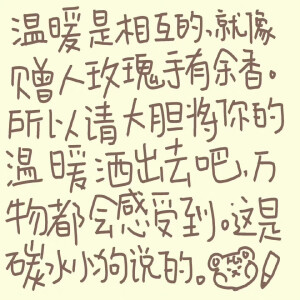 温暖是相互的、就像
赠人玫瑰手有余香。
所以请大胆将你的
温暖洒出去吧、万
物都会感受到。这是
碳水小狗说的。